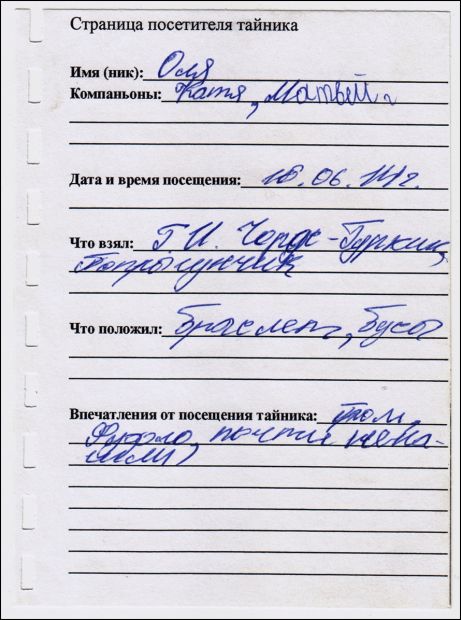 Страница посетителя тайника
Имя (ник): Оля
Компаньоны: Катя, Матвей
Дата и время посещения: 10.06.14г.
Что взял: Г.И. Чорос-Гуркин,
Попрыгунчик
Что положил: Браслет, бусы
Впечатления от посещения тайника:
почти не на-
шли